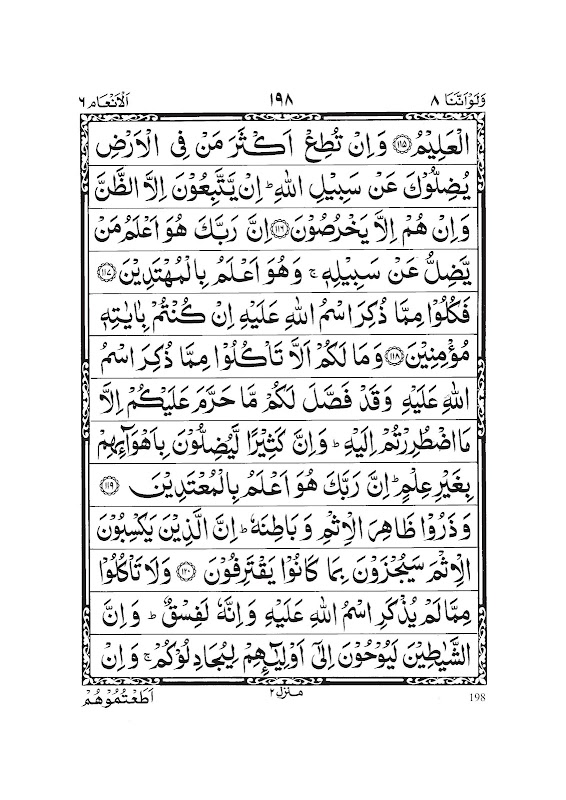 وَلَوْ اَنَّنَا ٨ ١٩٨ اَلْاَنْعَام ٦
الْعَلِيْمُ ﴿۱۱۵﴾ وَاِنْ تُطِعْ اَكْثَرَ مَنْ فِى الْاَرْضِ
يُضِلُّوْكَ عَنْ سَبِيْلِ اللّٰهِ ؕ اِنْ يَّتَّبِعُوْنَ اِلَّا الظَّنَّ
وَاِنْ هُمْ اِلَّا يَخْرُصُوْنَ ﴿۱۱۶﴾ اِنَّ رَبَّكَ هُوَ اَعْلَمُ مَنْ
يَّضِلُّ عَنْ سَبِيْلِهٖ ۚ وَهُوَ اَعْلَمُ بِالْمُهْتَدِيْنَ ﴿۱۱۷﴾
فَكُلُوْا مِمَّا ذُكِرَ اسْمُ اللّٰهِ عَلَيْهِ اِنْ كُنْتُمْ بِاٰيٰتِهٖ
مُؤْمِنِيْنَ ﴿۱۱۸﴾ وَمَا لَكُمْ اَلَّا تَاْكُلُوْا مِمَّا ذُكِرَ اسْمُ
اللّٰهِ عَلَيْهِ وَقَدْ فَصَّلَ لَكُمْ مَّا حَرَّمَ عَلَيْكُمْ اِلَّا
مَا اضْطُرِرْتُمْ اِلَيْهِ ؕ وَاِنَّ كَثِيْرًا لَّيُضِلُّوْنَ بِاَهْوَآئِهِمْ
بِغَيْرِ عِلْمٍ ؕ اِنَّ رَبَّكَ هُوَ اَعْلَمُ بِالْمُعْتَدِيْنَ ﴿۱۱۹﴾
وَذَرُوْا ظَاهِرَ الْاِثْمِ وَبَاطِنَهٗ ؕ اِنَّ الَّذِيْنَ يَكْسِبُوْنَ
الْاِثْمَ سَيُجْزَوْنَ بِمَا كَانُوْا يَقْتَرِفُوْنَ ﴿۱۲۰﴾ وَلَا تَاْكُلُوْا
مِمَّا لَمْ يُذْكَرِ اسْمُ اللّٰهِ عَلَيْهِ وَاِنَّهٗ لَفِسْقٌ ؕ وَاِنَّ
الشَّيٰطِيْنَ لَيُوْحُوْنَ اِلٰٓى اَوْلِيٰٓئِهِمْ لِيُجَادِلُوْكُمْ ۚ وَاِنْ
198 منزل ٢ اَطَعْتُمُوْهُمْ